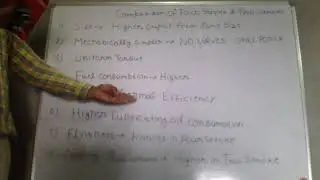 Comparison of Four Stroke & Two Stroke
1) Size → Higher output from Same Size
2) Mechanically Simple → NO Valves only Ports
3) Uniform Torque
Fuel consumption → Higher
Thermal Efficiency
6) Higher Lubricating oil consumption
7) Flywheel → Heavier in Four Stroke
Higher in Two Stroke